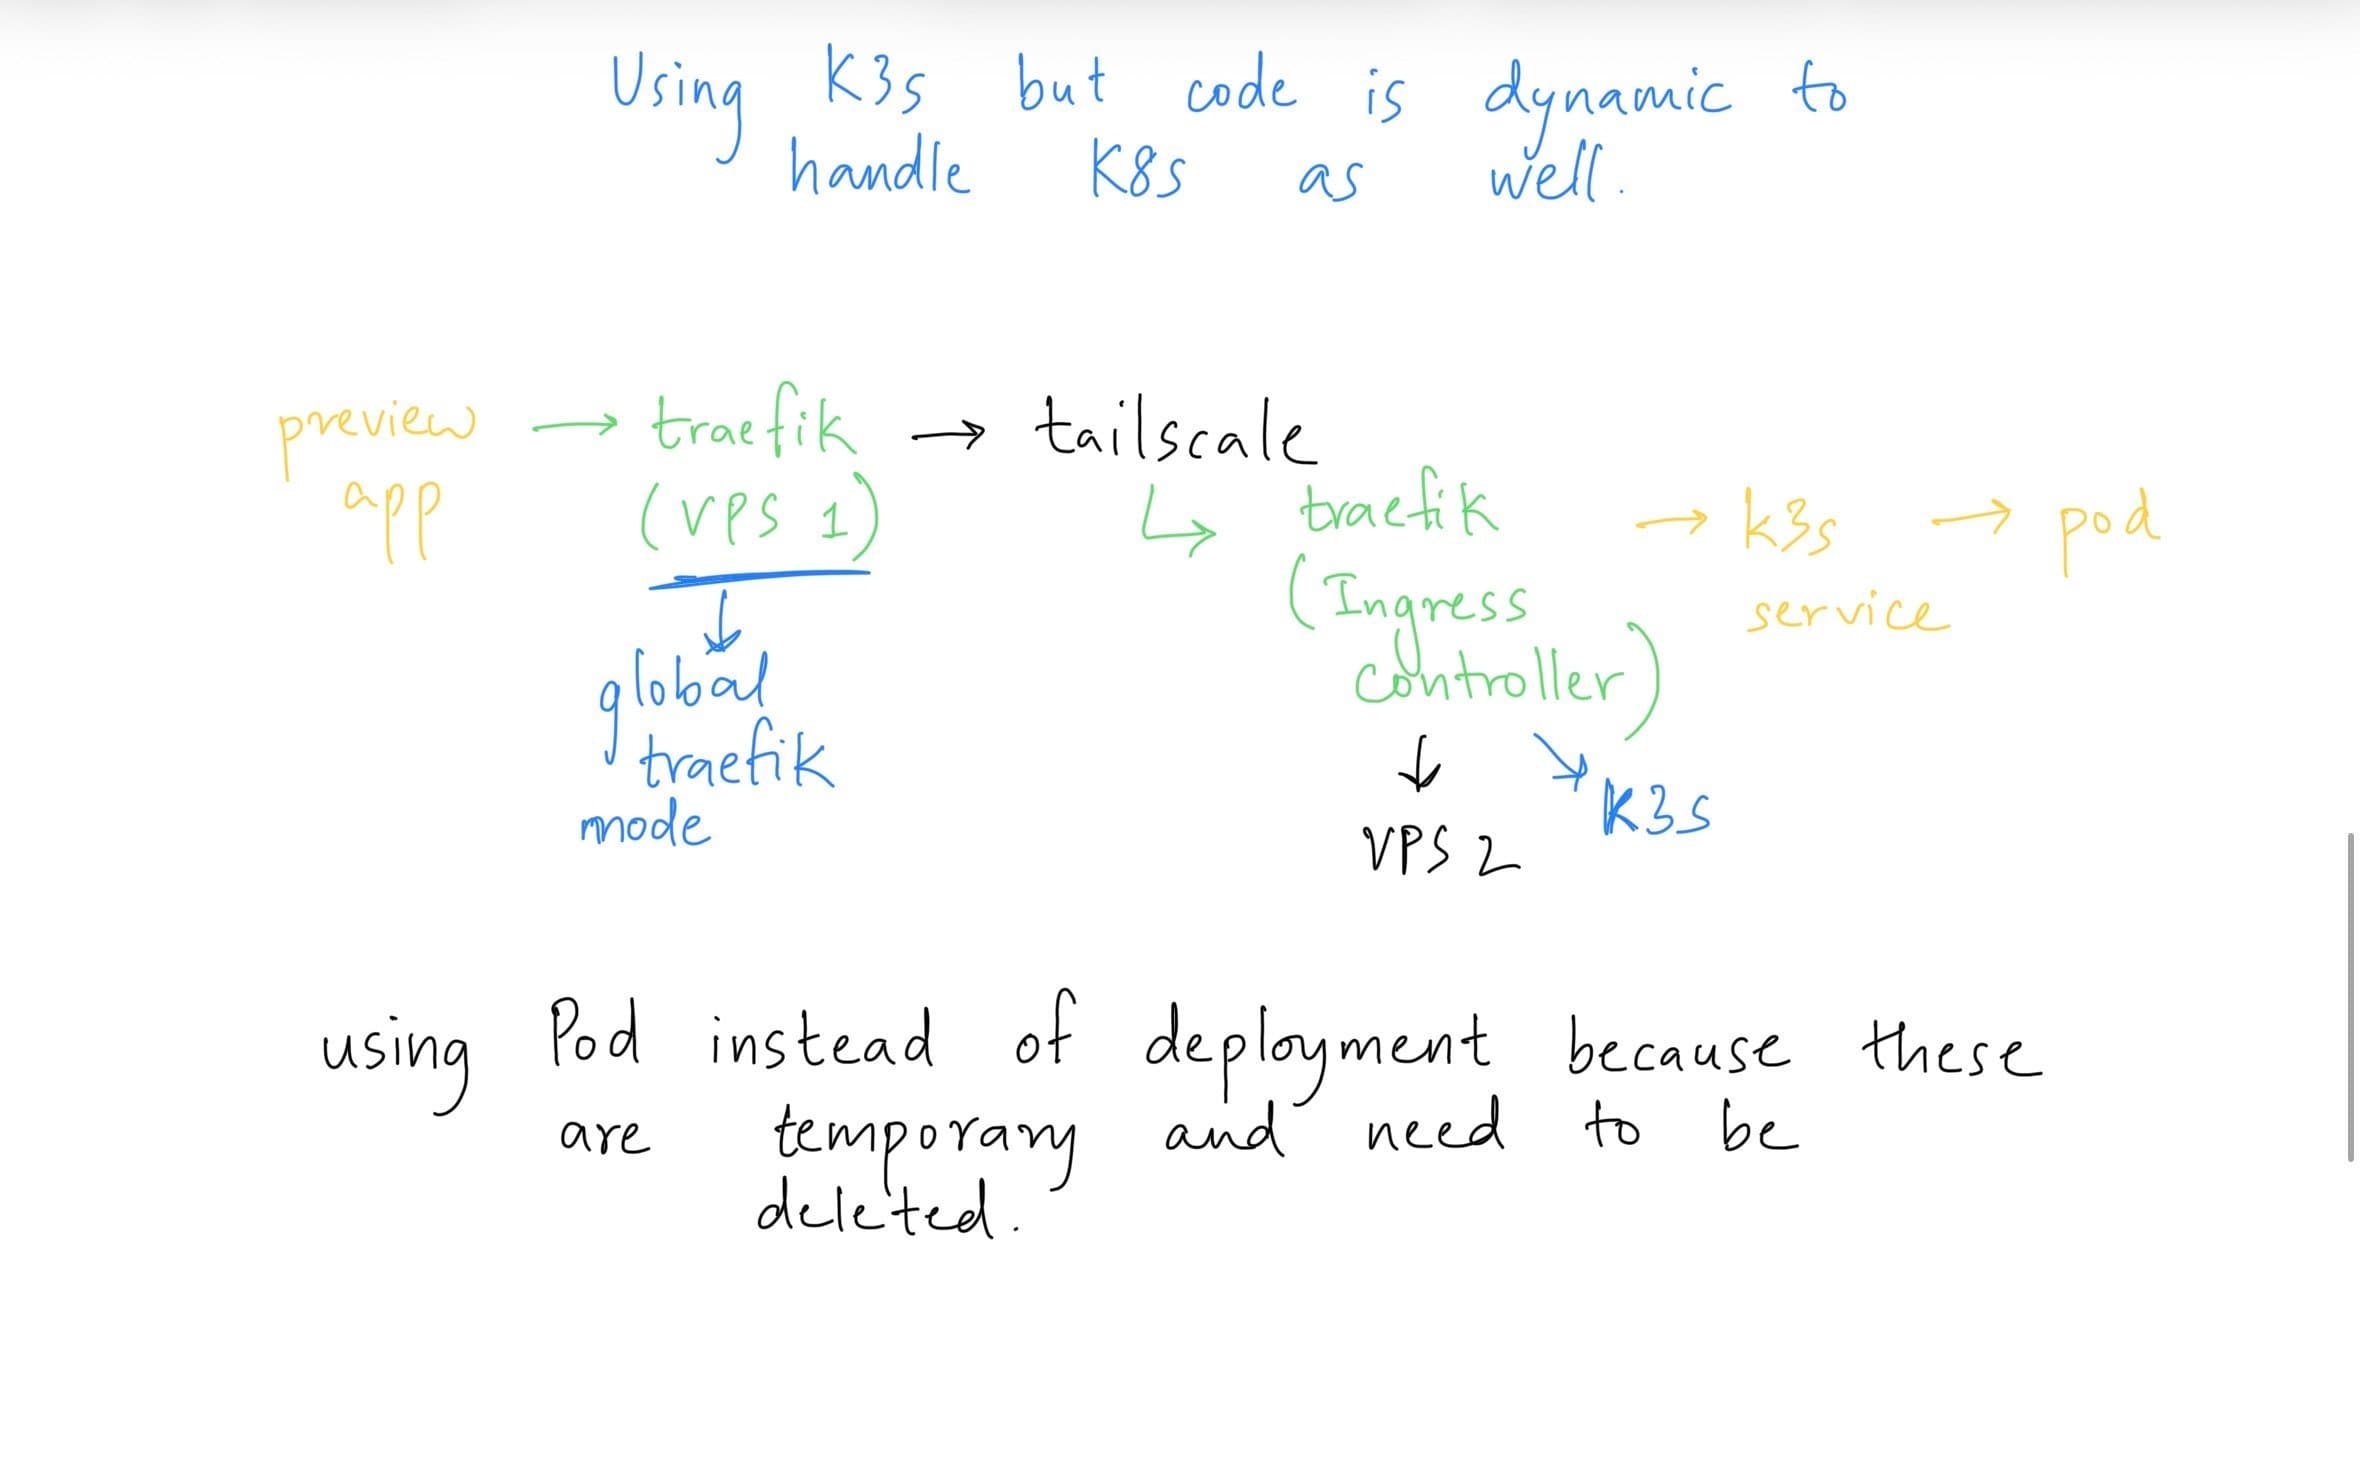 Using K3s but code is dynamic to
handle K8s as well.
preview → traefik → tailscale
app (VPS 1) ↳ traefik → k3s → pod
(Ingress service
controller)
↓ ↓ ↘
global VPS 2 K3s
traefik
mode
using Pod instead of deployment because these
are temporary and need to be
deleted.